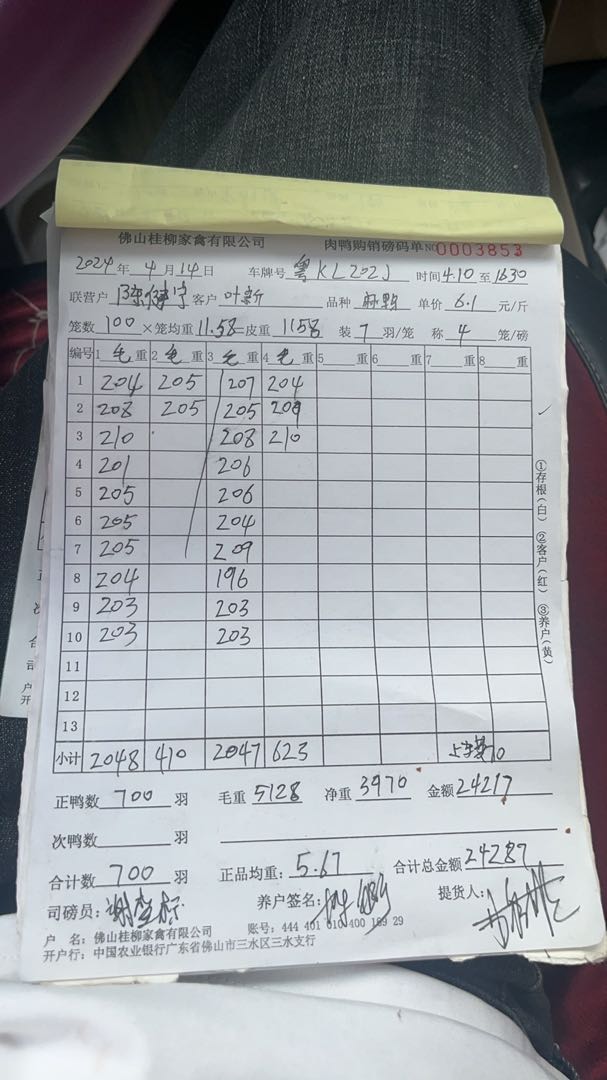 佛山桂柳家禽有限公司 肉鸭购销磅码单 NO 0003853
2024年4月14日 车牌号 粤KL202J 时间4.10至1630
联营户 客户 叶新 品种 单价 6.1 元/斤
笼数 100 ×笼均重 11.58=皮重 1158 装 7 羽/笼 称 4 笼/磅
编号 1 毛 重 2 毛 重 3 毛 重 4 毛 重 5 重 6 重 7 重 8 重
1 204 205 207 204
2 208 205 205 209
3 210 208 210
4 201 206
5 205 206
6 205 204
7 205 209
8 204 196
9 203 203
10 203 203
11
12
13
小计 2048 410 2047 623 70
正鸭数 700 羽 毛重 5128 净重 3970 金额 24217
次鸭数 羽
合计数 700 羽 正品均重: 5.67 合计总金额 24287
司磅员: 养户签名: 提货人:
户 名: 佛山桂柳家禽有限公司 账号: 444 401 010 400 169 29
开户行: 中国农业银行广东省佛山市三水区三水支行
①存根(白) ②客户(红) ③养户(黄)